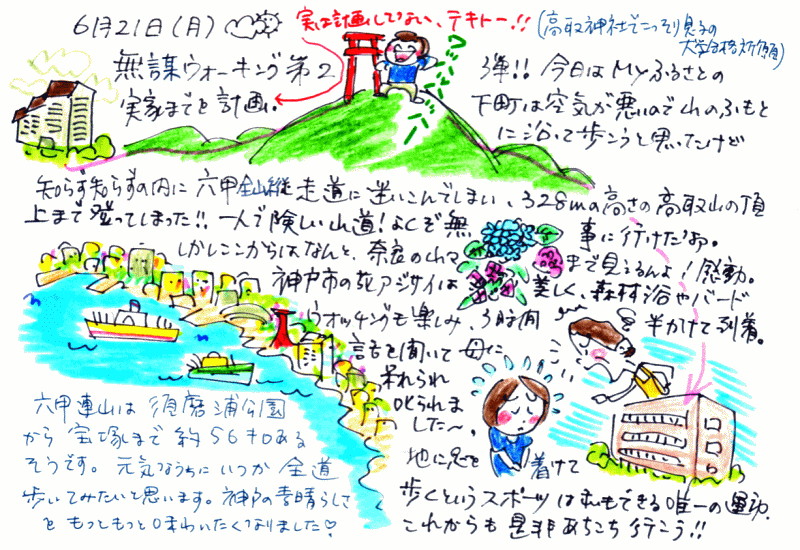 6月21日(月)
実は計画していない、テキトー!!
(高取神社でこっそり息子の
大学合格祈願)
無謀ウォーキング第2弾!! 今日はMyふるさとの
実家までを計画。下町は空気が悪いので山のふもと
に沿って歩こうと思ったけど
知らず知らずの内に六甲全山縦走道に迷いこんでしまい、328mの高さの高取山の頂
上まで登ってしまった!! 一人で険しい山道!よくぞ無事に行けただわ。
しかしここからはなんと、奈良の山々まで見えるんよ!感動。
神戸市の花アジサイは美しく、森林浴やバード
ウォッチングも楽しみ、3時間半かけて到着。
話を聞いて母に
呆れられ
叱られま
した〜。
地に足を着けて
歩くというスポーツは私もできる唯一の運動。
これからも是非あちこち行こう!!
六甲連山は須磨浦公園
から宝塚まで約56キロある
そうです。元気なうちにいつか全道
歩いてみたいと思います。神戸の素晴らしさ
をもっともっと味わいたくなりました♡